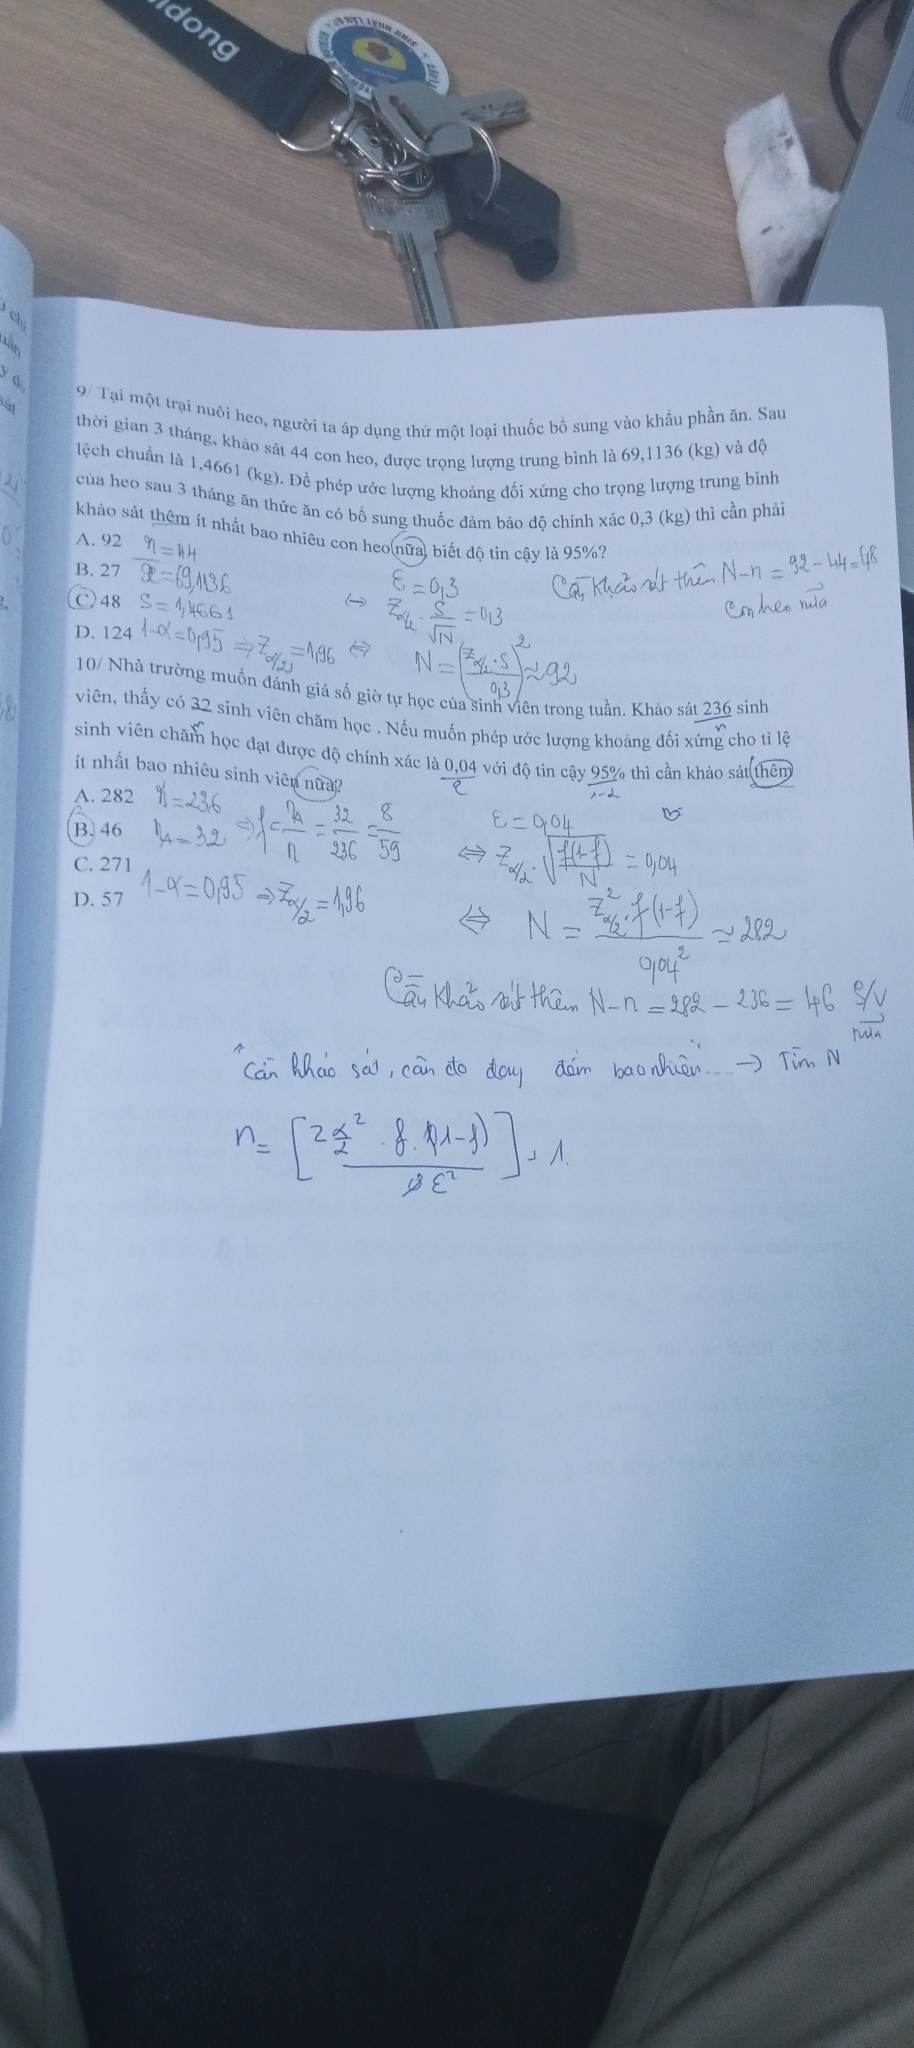 idong
9/ Tại một trại nuôi heo, người ta áp dụng thử một loại thuốc bổ sung vào khẩu phần ăn. Sau
thời gian 3 tháng, khảo sát 44 con heo, được trọng lượng trung bình là 69,1136 (kg) và độ
lệch chuẩn là 1,4661 (kg). Để phép ước lượng khoảng đối xứng cho trọng lượng trung bình
của heo sau 3 tháng ăn thức ăn có bổ sung thuốc đảm bảo độ chính xác 0,3 (kg) thì cần phải
khảo sát thêm ít nhất bao nhiêu con heo nữa, biết độ tin cậy là 95%?
A. 92 n=44
B. 27 x̄=69,1136 ε=0,3 Cần khảo sát thêm N-n=92-44=48
C. 48 S=1,4661 ⇔ Zα/2 · S/√N = 0,3 con heo nữa
D. 124 1-α=0,95 ⇒ Zα/2=1,96 ⇔ N=(Zα/2·S/0,3)² ≈ 92
10/ Nhà trường muốn đánh giá số giờ tự học của sinh viên trong tuần. Khảo sát 236 sinh
viên, thấy có 32 sinh viên chăm học . Nếu muốn phép ước lượng khoảng đối xứng cho tỉ lệ
sinh viên chăm học đạt được độ chính xác là 0,04 với độ tin cậy 95% thì cần khảo sát thêm
ít nhất bao nhiêu sinh viên nữa?
A. 282 n=236
B. 46 nA=32 ⇒ f=nA/n=32/236=8/59 ε=0,04
C. 271 ⇔ Zα/2·√(f(1-f)/N) = 0,04
D. 57 1-α=0,95 ⇒ Zα/2=1,96
⇔ N = Z²α/2·f(1-f)/0,04² ≈ 282
Cần khảo sát thêm N-n=282-236=46 s/v
nữa
Cần khảo sát, cần đo đạy đám bao nhiêu... → Tìm N
n= [Zα/2² · f.(1-f)/ε²] + 1.